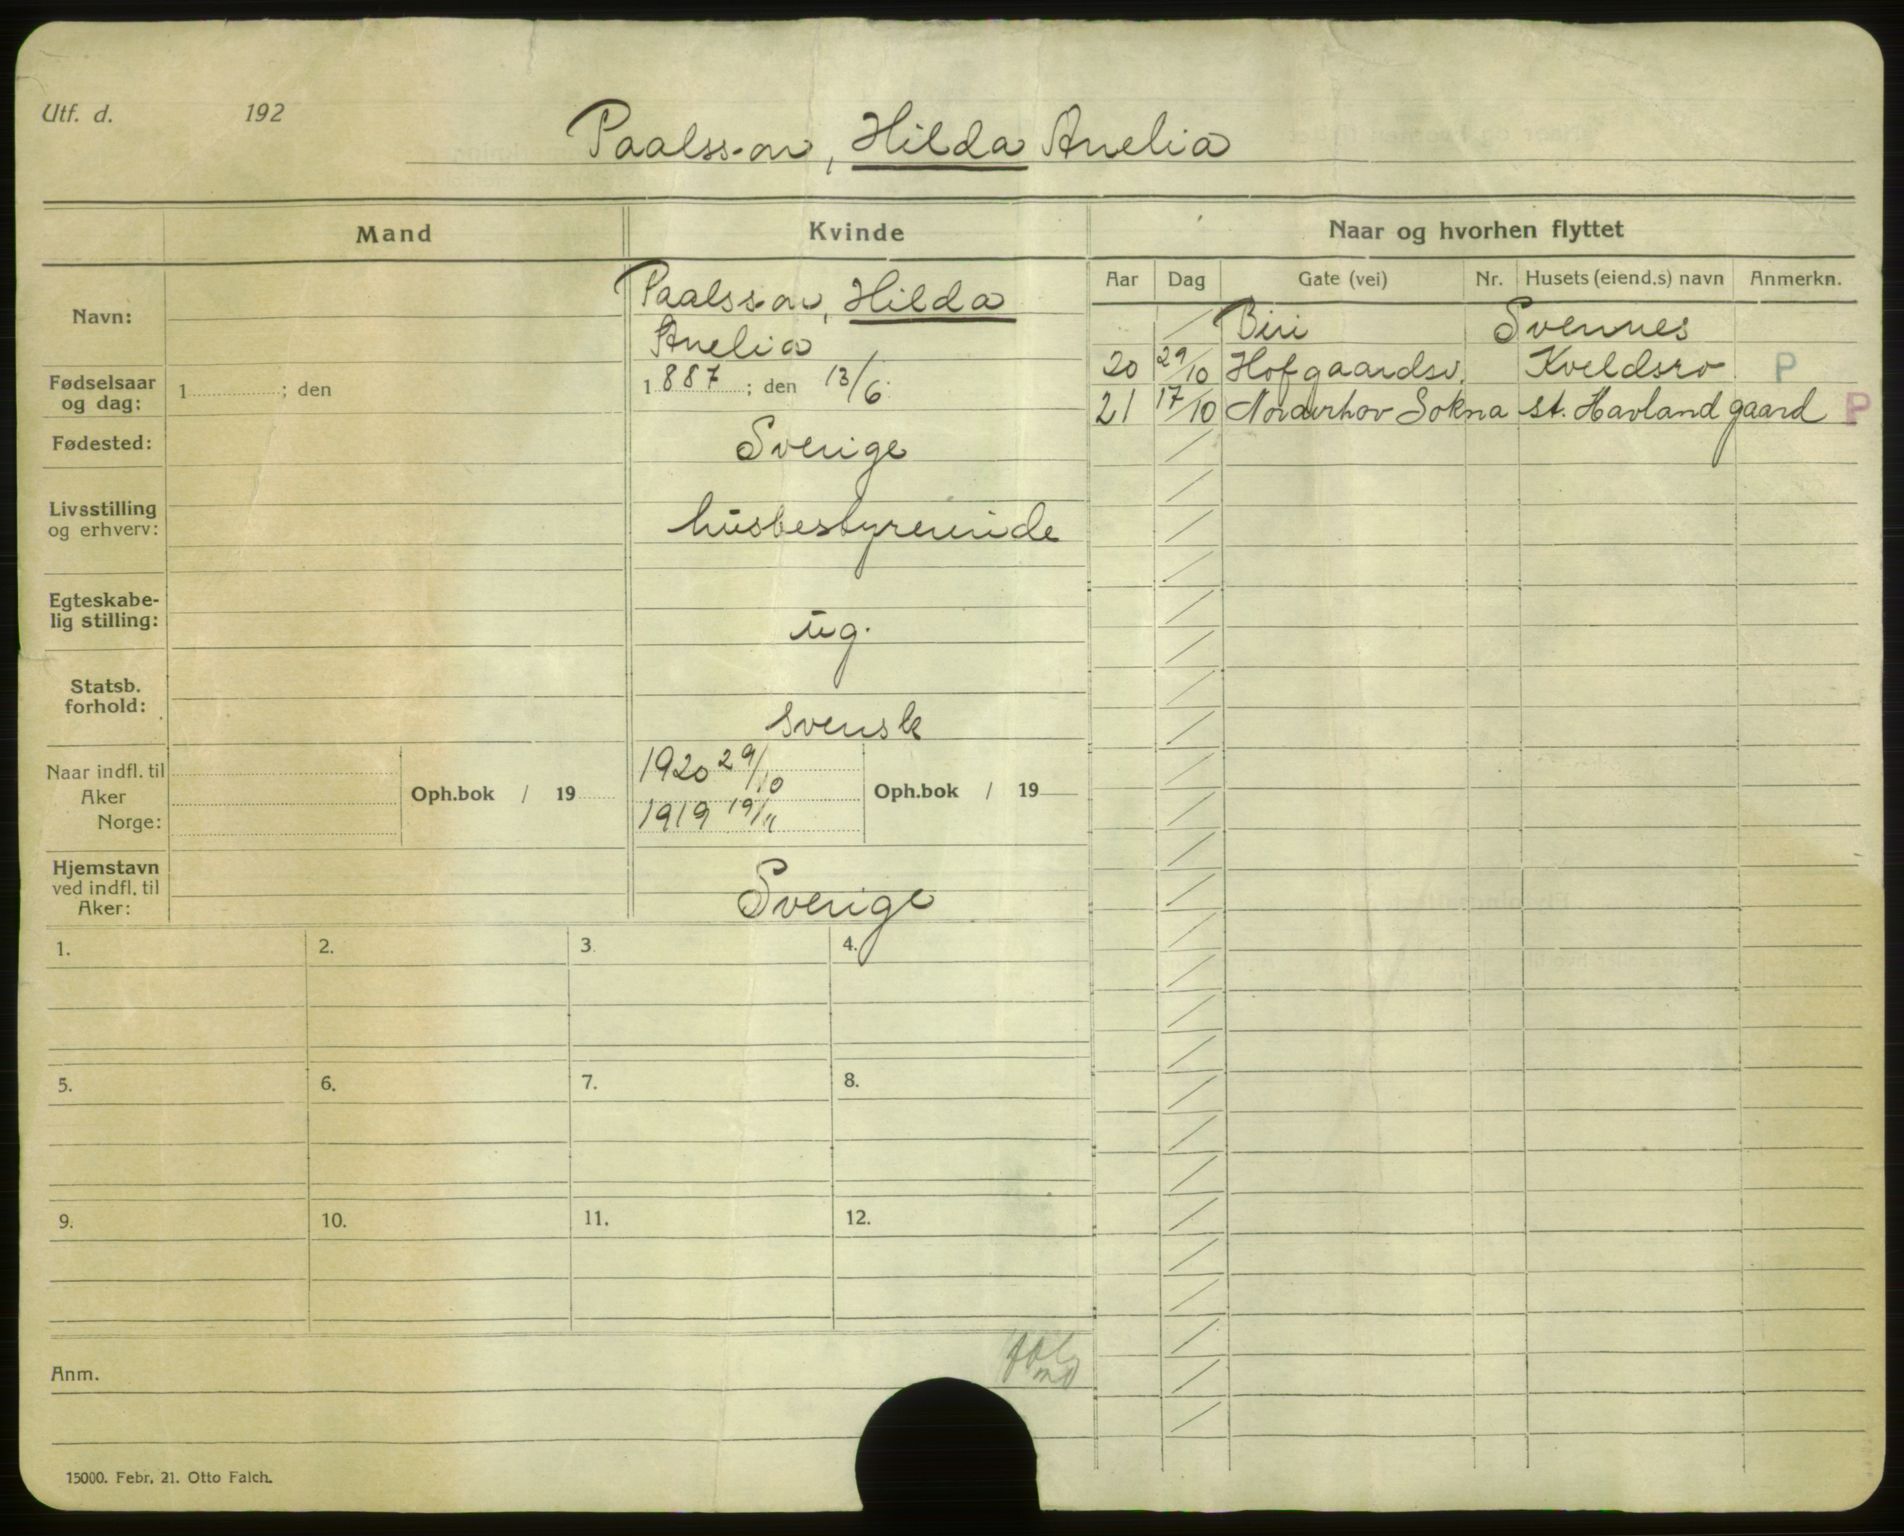 Utf. d. 192
Paalsson, Hilda Anelia
Mand Kvinde Naar og hvorhen flyttet
Aar Dag Gate (vei) Nr. Husets (eiend.s) navn Anmerkn.
Navn: Paalsson, Hilda
Anelia
/ Biri Svennes
20 29/10 Hofgaardsv. Kveldsro P
21 17/10 Norderhov Sokna St. Havland gaard P
Fødselsaar
og dag: 1 ; den 1887 ; den 13/6
Fødested: Sverige
Livsstilling
og erhverv: husbestyrerinde
Egteskabe-
lig stilling: ug.
Statsb.
forhold: svensk
Naar indfl. til
Aker
Norge:
Oph.bok / 19
1920 29/10
1919 19/11
Oph.bok / 19
Hjemstavn
ved indfl. til
Aker: Sverige
1. 2. 3. 4.
5. 6. 7. 8.
9. 10. 11. 12.
Anm.
15000. Febr. 21. Otto Falch.